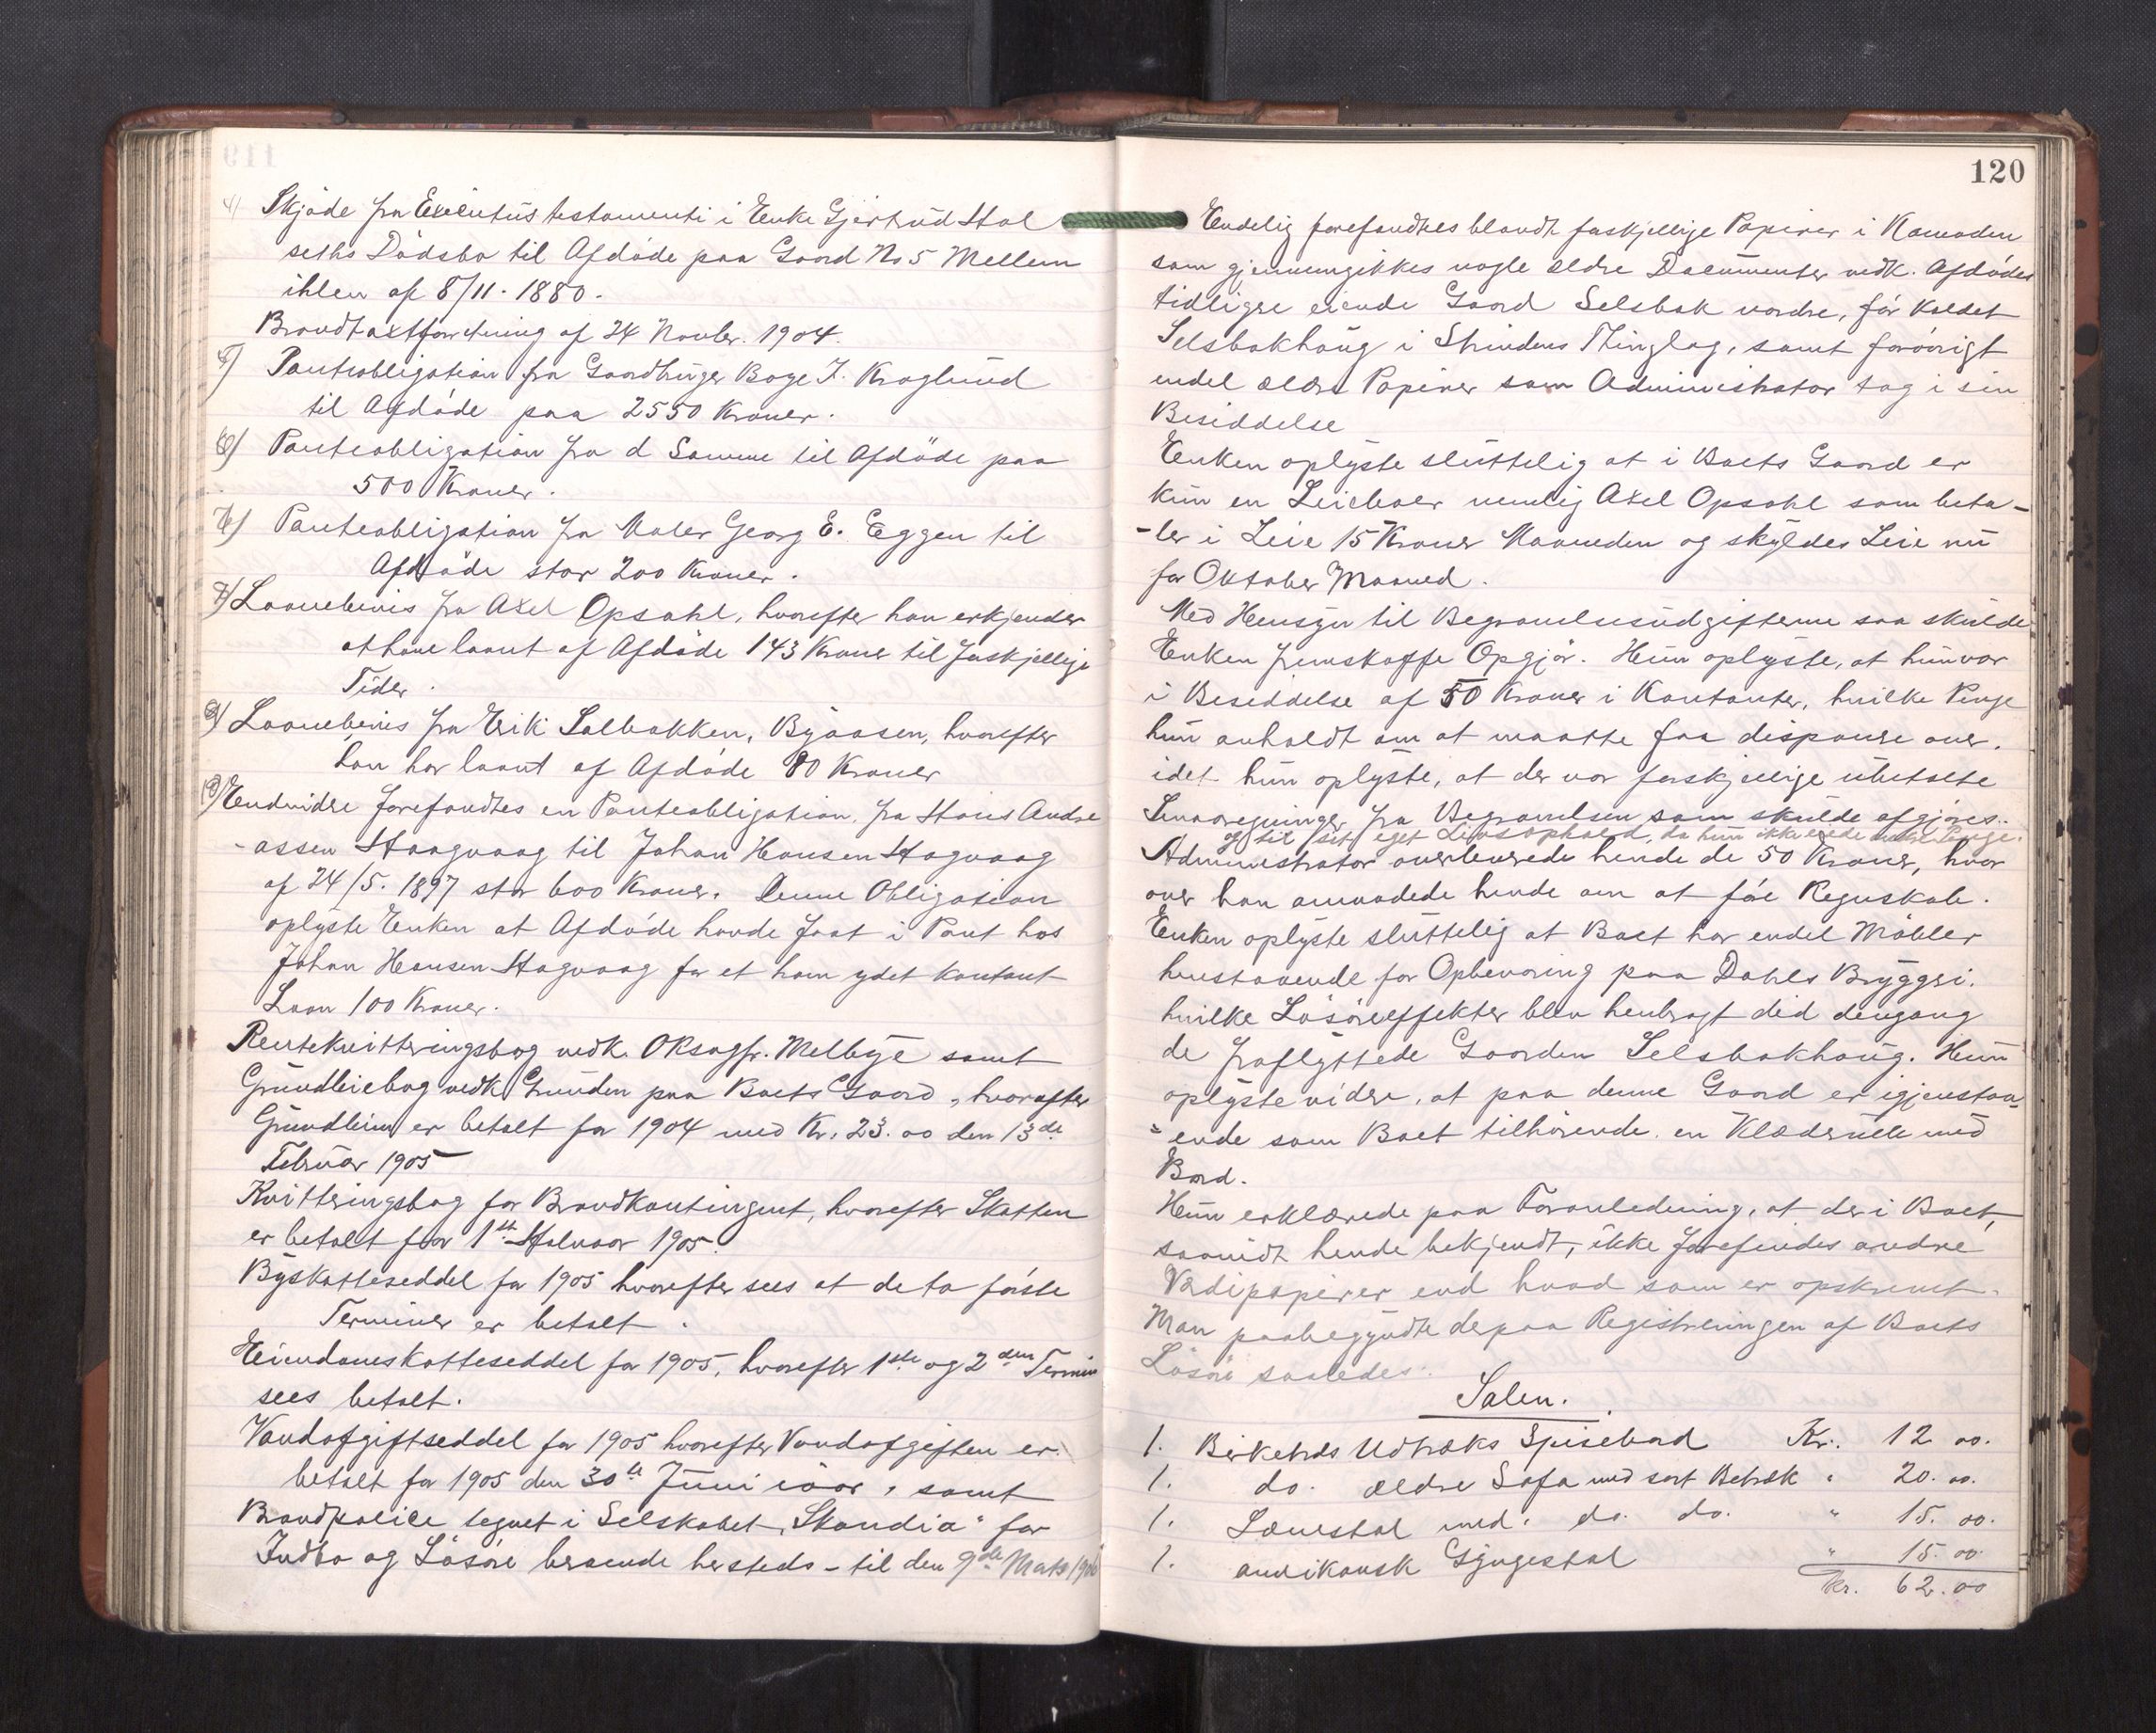 4) Skjøde fra Executus testamenti i Enke Gjertrud Stol
seths Dødsbo til Afdøde paa Gaard No 5 Mellem
ihlen af 8/11. 1880.
Brandtaxtforretning af 24 Novbr. 1904.
5) Panteobligation fra Gaardbruger Boye J. Kroglund
til Afdøde paa 2550 Kroner.
6) Panteobligation fra d Samme til Afdøde paa
500 Kroner.
Panteobligation fra Maler Georg E. Eggen til
Afdøde stor 200 Kroner.
Laanebevis fra Axel Opsahl, hvorefter han erkjender
at have laant af Afdøde 143 Kroner til forskjellige
Tider.
Laanebevis fra Erik Solbakken, Byaasen, hvorefter
han har laant af Afdøde 80 Kroner
Endvidre forefandtes en Panteobligation fra Hans Andre
-assen Haagvaag til Johan Hansen Hagvaag
af 24/5. 1897 stor 600 Kroner. Denne Obligation
oplyste Enken at Afdøde havde faat i Pant hos
Johan Hansen Hagvaag for et ham ydet kontant
Laan 100 Kroner.
Rentekvitteringsbog vedk. OKsagfr. Melbye samt
Grundleiebog vedk. Grunden paa Boets Gaard, hvorefter
Grundleien er betalt for 1904 med Kr. 23.00 den 13de
Februar 1905
Kvitteringsbog for Brandkontingent, hvorefter Skatten
er betalt for 1ste Halvaar 1905.
Byskatteseddel for 1905 hvorefter sees at de to første
Terminer er betalt.
Eiendomskatteseddel for 1905, hvorefter 1ste og 2den Termin
sees betalt.
Vandafgiftseddel for 1905 hvorefter Vandafgiften er
betalt for 1905 den 30te Juni iaar, samt
Brandpolice tegnet i Selskabet „Skandia“ for
Indbo og Løsøre beroende hersteds - til den 9de Marts 1906
120
Endelig forefandtes blandt forskjellige Papirer i Komoden
som gjennemgikkes nogle ældre Documenter vedk. Afdødes
tidligere eiende Gaard Selsbak nordre, før kaldet
Selsbakhaug i Strindens Thinglag, samt forøvrigt
endel ældre Papirer som Administrator tog i sin
Besiddelse
Enken oplyste sluttelig at i Boets Gaard er
kun en Leieboer nemlig Axel Opsahl som beta-
-ler i Leie 15 Kroner Maaneden og skyldes Leie nu
for Oktober Maaned.
Med Hensyn til Begravelsesudgifterne saa skulde
Enken fremskaffe Opgjør. Hun oplyste, at hun var
i Besiddelse af 50 Kroner i Kontanter, hvilke Penge
hun anholdt om at maatte faa disponere over.
idet hun oplyste, at der var forskjellige ubetalte
Smaaregninger fra Begravelsen som skulde afgjøres
og til sit eget Livsophold, da hun ikke eiede andre Penge.
Administrator overleverede hende de 50 Kroner, hvor
over han anmodede hende om at føre Regnskab.
Enken oplyste sluttelig at Boet har endel Møbler
henstaaende for Opbevaring paa Dahls Bryggeri.
hvilke Løsøreeffekter blev henbragt did dengang
de fraflyttede Gaarden Selsbakhaug. Hun
oplyste videre, at paa denne Gaard er igjenstaa-
-ende som Boet tilhørende en Klæderulle med
Bord.
Hun erklærede paa Foranledning, at der i Boet,
saavidt hende bekjendt, ikke forefindes andre
Værdipapirer end hvad som er opskrevet.
Man paabegyndte derpaa Registreringen af Boets
Løsøre saaledes:
Salen.
1. Birketræs Udtræks Spisebord Kr. 12 00.
1. do. ældre Sofa med sort Betræk " 20. 00.
1. Lænestol med do. do. " 15. 00.
1. amrikansk Gyngestol " 15. 00
Kr. 62.00